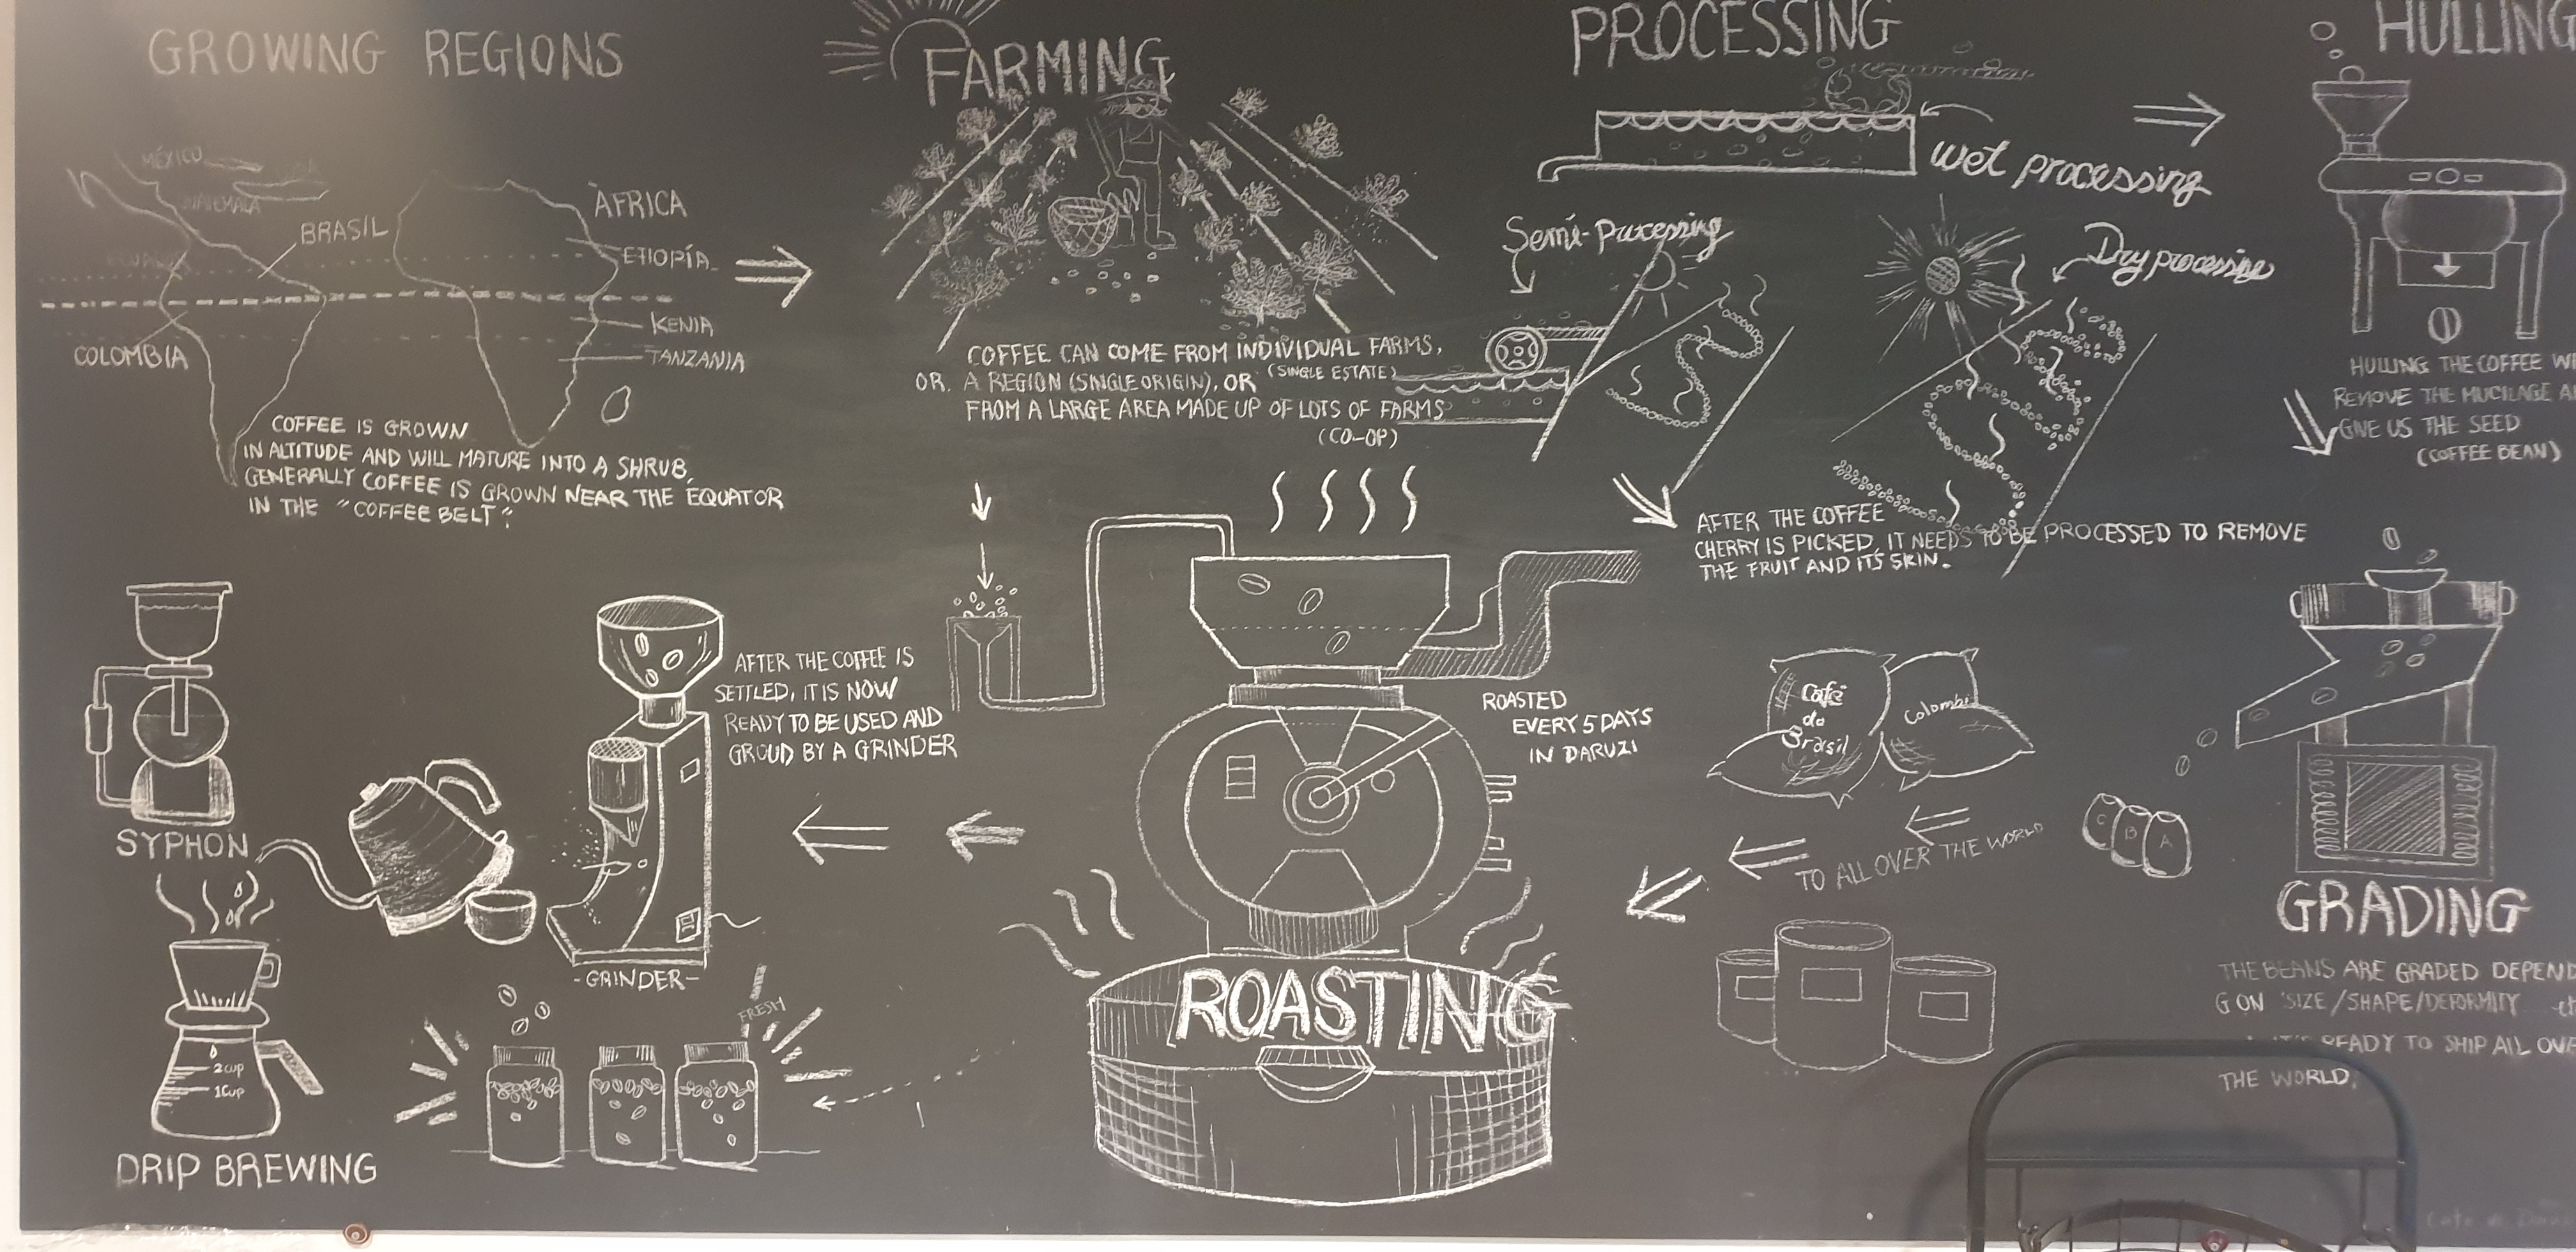 GROWING REGIONS
MÉXICO
BRASIL
COLOMBIA
ÁFRICA
ETIOPÍA
KENIA
TANZANIA
COFFEE IS GROWN
IN ALTITUDE AND WILL MATURE INTO A SHRUB,
GENERALLY COFFEE IS GROWN NEAR THE EQUATOR
IN THE "COFFEE BELT".
FARMING
COFFEE CAN COME FROM INDIVIDUAL FARMS,
(SINGLE ESTATE)
OR. A REGION (SINGLE ORIGIN), OR
FROM A LARGE AREA MADE UP OF LOTS OF FARMS
(CO-OP)
PROCESSING
wet processing
Semi-Processing
Dry processing
AFTER THE COFFEE
CHERRY IS PICKED, IT NEEDS TO BE PROCESSED TO REMOVE
THE FRUIT AND ITS SKIN.
HULLING
HULLING THE COFFEE WI
REMOVE THE MUCILAGE A
GIVE US THE SEED
(COFFEE BEAN)
C B A
GRADING
THE BEANS ARE GRADED DEPEND
G ON SIZE/SHAPE/DEFORMITY
READY TO SHIP ALL OVE
THE WORLD.
Café
do
Brasil
Colombi
TO ALL OVER THE WORLD
ROASTED
EVERY 5 DAYS
IN DARUZI
ROASTING
AFTER THE COFFEE IS
SETTLED, IT IS NOW
READY TO BE USED AND
GROUD BY A GRINDER
-GRINDER-
FRESH
SYPHON
2cup
1Cup
DRIP BREWING